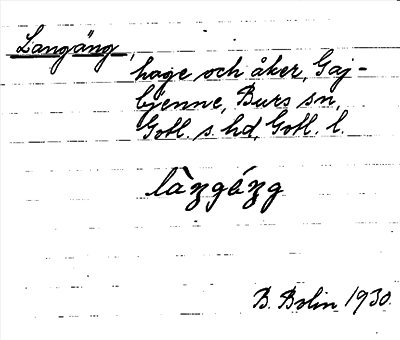 Langäng,
hage och åker, Gaj-
bjenne, Burs sn,
Gotl. s. hd, Gotl. l.
làŋgáŋg
B. Bolin 1930.